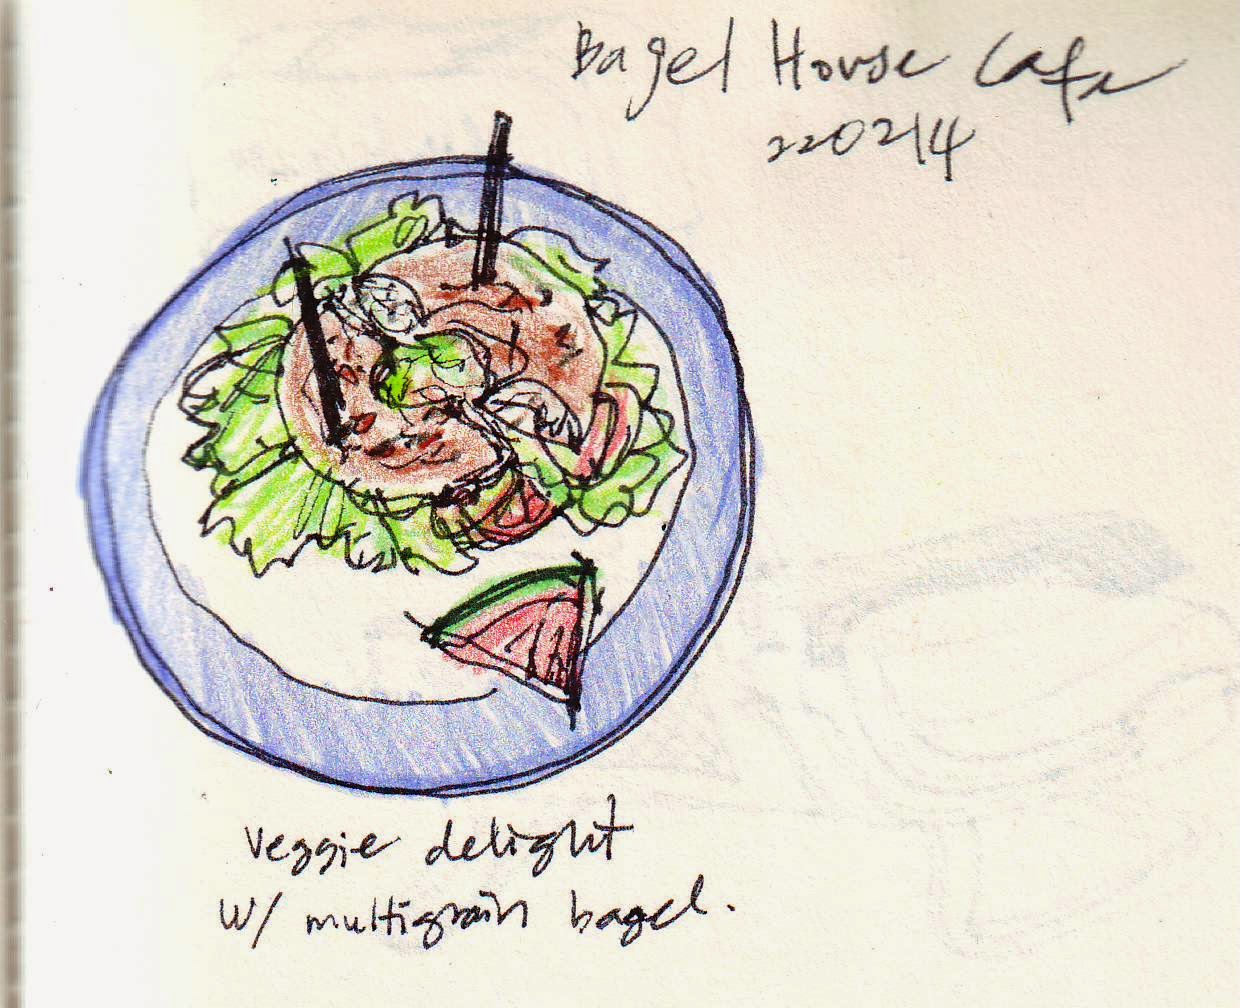 Bagel House Cafe
220214
veggie delight
w/ multigrain bagel.